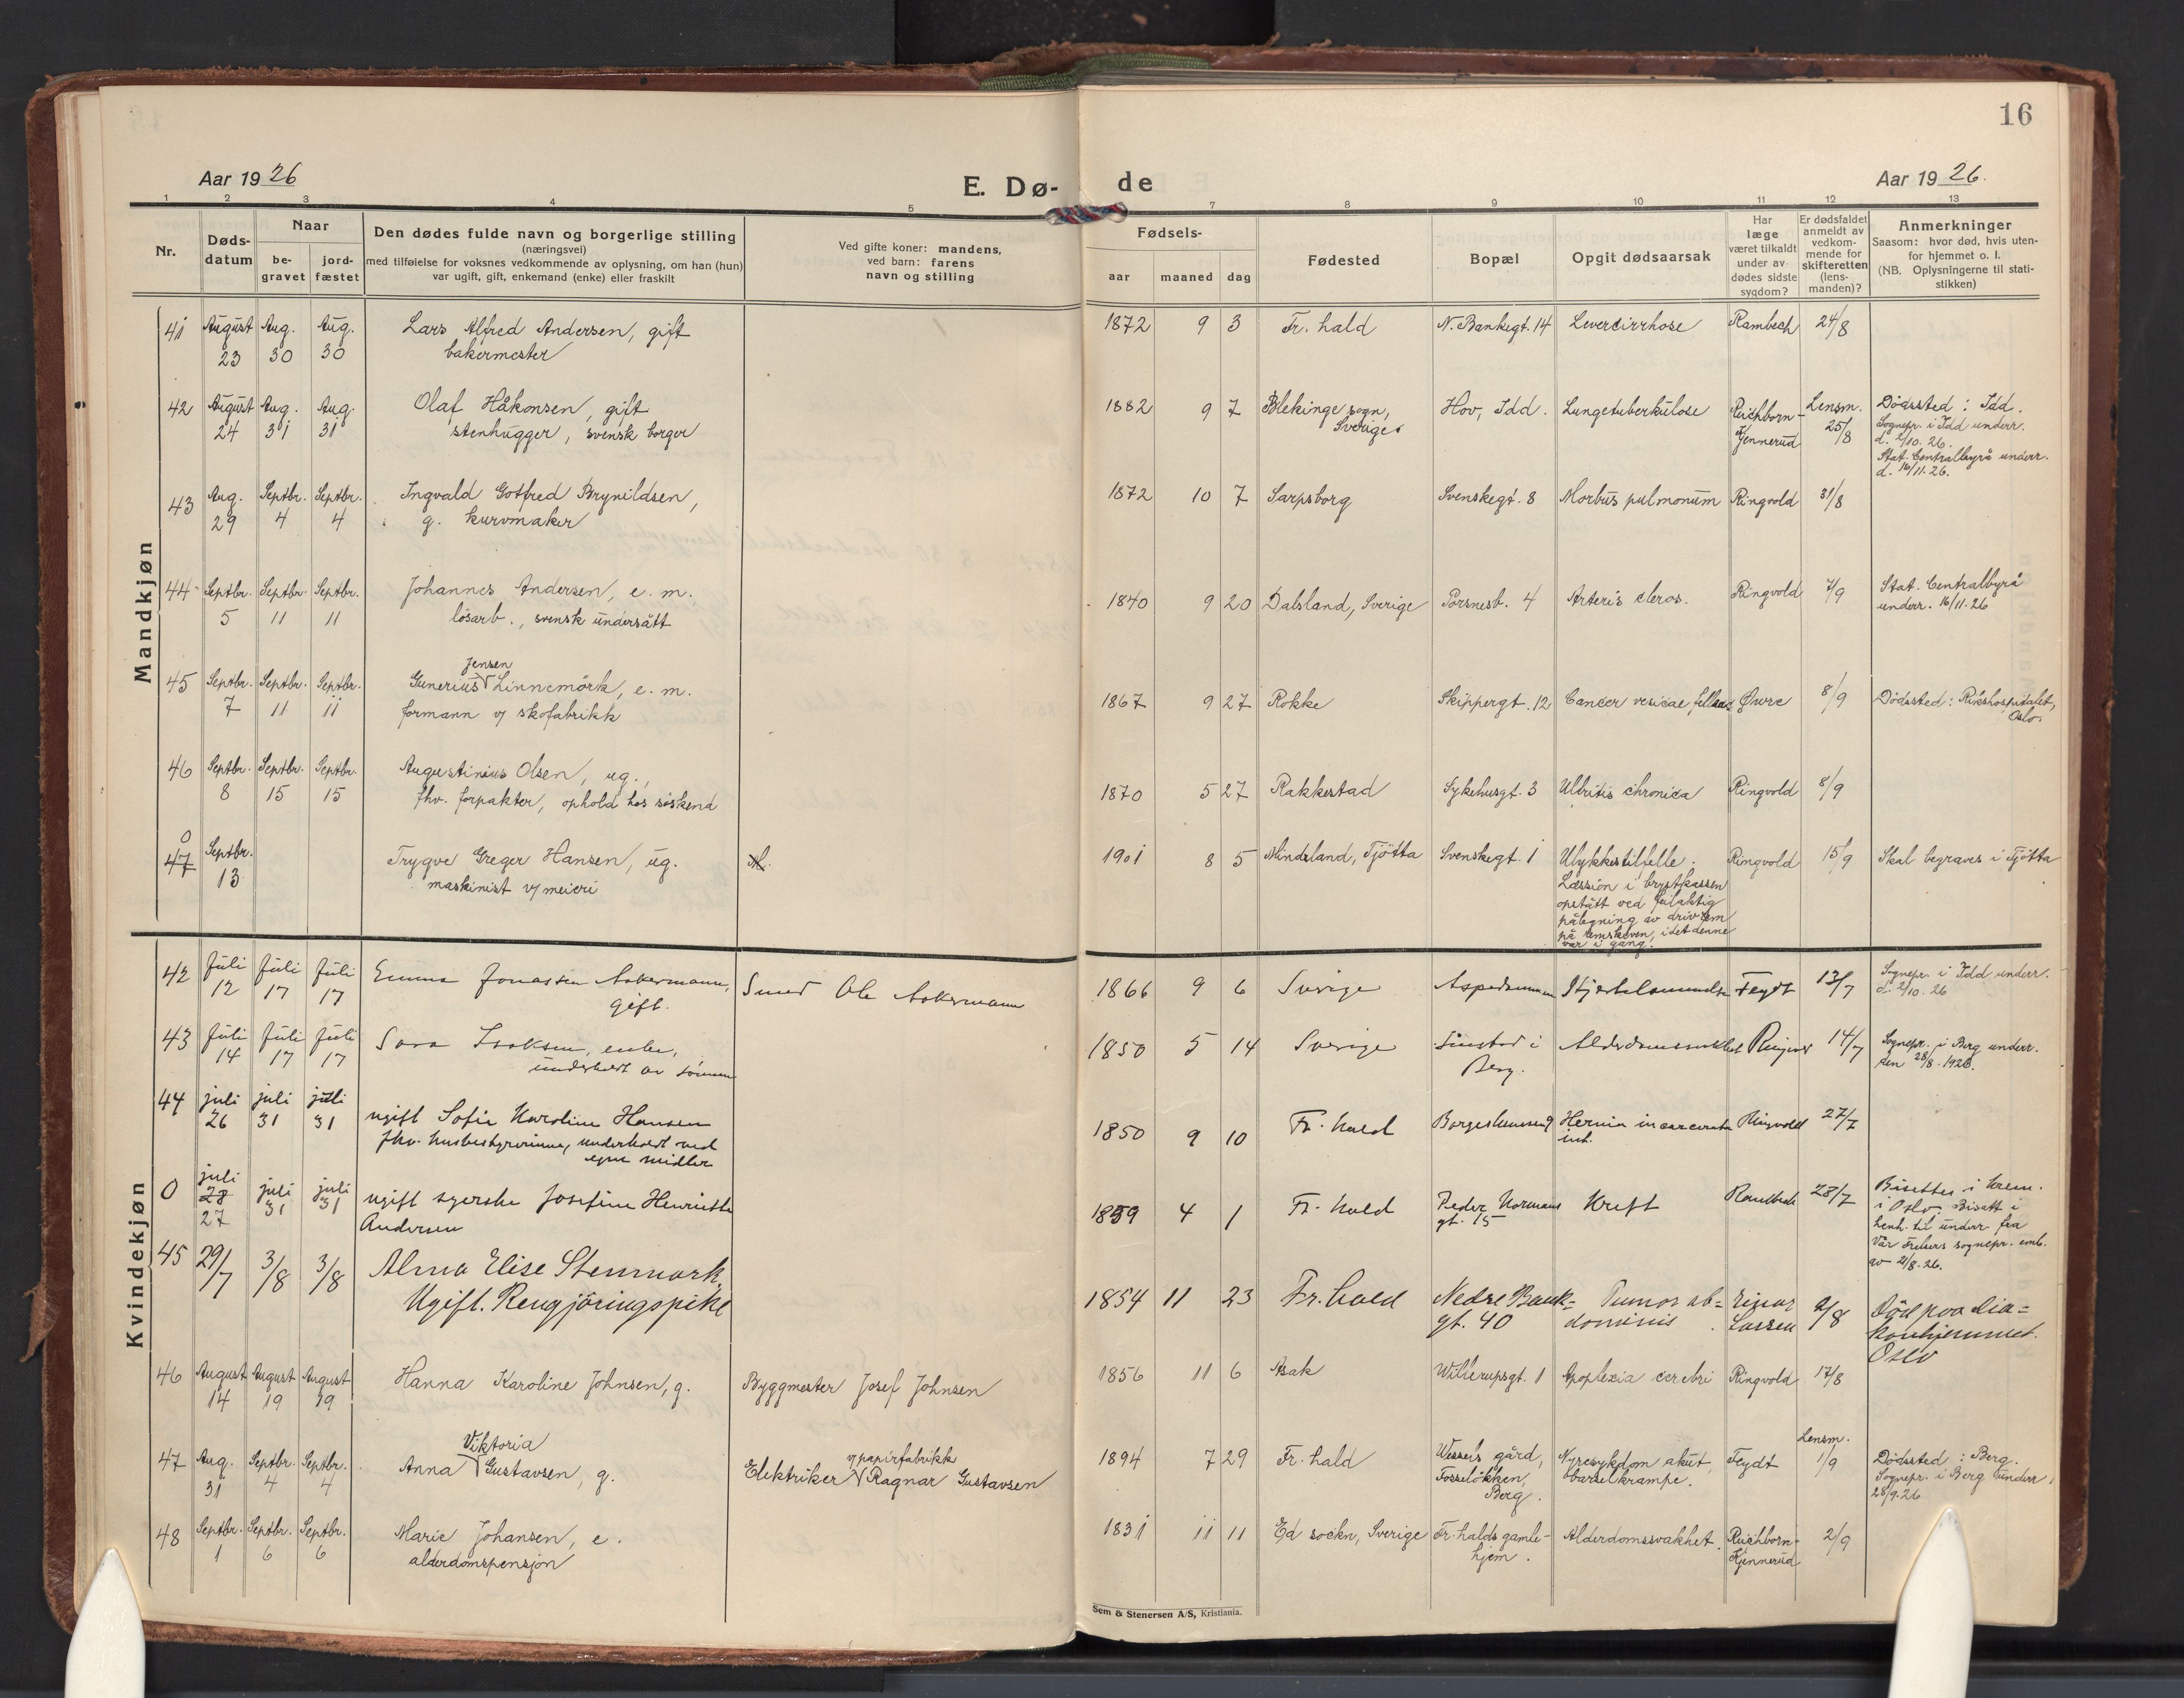 16
Aar 1926
E. Dø-
de
Aar 1926.
1 2 3 4 5 7 8 9 10 11 12 13
Nr.
Døds-
datum
Naar
be-
gravet
jord-
fæstet
Den dødes fulde navn og borgerlige stilling
(næringsvei)
med tilføielse for voksnes vedkommende av oplysning, om han (hun)
var ugift, gift, enkemand (enke) eller fraskilt
Ved gifte koner: mandens,
ved barn: farens
navn og stilling
Fødsels-
aar maaned dag
Fødested
Bopæl
Opgit dødsaarsak
Har
læge
været tilkaldt
under av-
dødes sidste
sygdom?
Er dødsfaldet
anmeldt av
vedkom-
mende for
skifteretten
(lens-
manden)?
Anmerkninger
Saasom: hvor død, hvis uten-
for hjemmet o. l.
(NB. Oplysningerne til stati-
stikken)
Mandkjøn
41 August Aug. Aug. Lars Alfred Andersen, gift
23 30 30 bakermester
1872 9 3 Fr. hald N. Bankegt. 14 Levercirrhose Rambech 24/8
42 August Aug. Aug. Olaf Håkonsen, gift
24 31 31 stenhugger, svensk borger
1882 9 7 Blekinge sogn, Hov, Idd. Lungetuberkulose Reichborn- Lensm.
Sverige. Kjennerud 25/8
Dödssted: Idd.
Sognepr. i Idd underr.
d. 2/10. 26.
Stat. Centralbyrå underr.
d. 16/11. 26.
43 Aug. Septbr. Septbr. Ingvald Gotfred Brynildsen,
29 4 4 g. kurvmaker
1872 10 7 Sarpsborg Svenskegt. 8 Morbus pulmonum Ringvold 31/8
44 Septbr. Septbr. Septbr. Johannes Andersen, e. m.
5 11 11 lösarb., svensk undersått
1840 9 20 Dalsland, Sverige Torsnesb. 4 Arteris cleros. Ringvold 7/9
Stat. Centralbyrå
underr. 16/11. 26
Jensen
45 Septbr. Septbr. Septbr. Gunerius Linnemörk, e. m.
7 11 11 formann v/ skofabrikk
1867 9 27 Rokke Skippergt. 12 Cancer vesicae felleae Øwre 8/9 Dödssted: Rikshospitalet,
Oslo.
46 Septbr. Septbr. Septbr. Augustinius Olsen, ug.,
8 15 15 fhv. forpakter, ophold hos söskend
1870 5 27 Rakkestad Sykehusgt. 3 Chronica Ringvold 8/9
0
47 Septbr. Trygve Greger Hansen, ug.
13 maskinist v/ meieri
M.
1901 8 5 Mindsland, Tjötta Svenskegt. 1 Ulykkestilfelle. Ringvold 15/9 Skal begraves i Tjötta
Læssion i brystkassen
opstått ved feilaktig
pålegning av drivrem
på remskiven, idet denne
var i gang.
Kvindekjøn
42 Juli Juli Juli Emma Jonassen Askermann,
12 17 17 gift.
Smed Ole Askermann
1866 9 6 Sverige Aspedammen Feydt 13/7
Sognepr. i Idd underr.
d. 2/10. 26
43 Juli Juli Juli Sara Isaksen, enke,
14 17 17 underholdt av sönnen
1850 5 14 Sverige i Alderdomssvakhet 14/7
Berg.
Sognepr. i Berg underr.
den 28/8. 1926.
44 juli juli juli ugift Sofie Karoline Hansen
26 31 31 fhv. husbestyrerinne, underholdt ved
egne midler
1850 9 10 Fr. hald Borgershaugen Hernia incarcerata Ringvold 27/7
int.
0 juli juli juli ugift syerske Josefine Henriette
28 31 31 Andersen
27
1859 4 1 Fr. hald Peder Normans Kreft Rambech 28/7
gt. 15
Bisettes i Krem.
i Oslo. Bisatt i
henh. til underr fra
Vår Frelsers sognepr. emb.
av 21/8. 26.
45 29/7 3/8 3/8 Alma Elise Stenmark,
Ugift. Rengjöringspike
1854 11 23 Fr. hald Nedre Bank= Tumor ab= Einar 2/8 Död paa Dia=
gt. 40 dominis Larssen konhjemmet.
Oslo
46 August August August Hanna Karoline Johnsen, g.
14 19 19
Byggmester Josef Johnsen
1856 11 6 Asak Willerupsgt. 1 Apoplexia cerebri Ringvold 17/8
Viktoria
47 Aug. Septbr. Septbr. Anna Gustavsen, g.
31 4 4
v/ papirfabrikk
Elektriker Ragnar Gustavsen
1894 7 29 Fr. hald Wessels gård, Nyresykdom akut, Feydt Lensm.
Fosseløkken, barselkrampe. 1/9
Berg.
Dödssted: Berg.
Sognepr. i Berg underr.
28/9. 26
48 Septbr. Septbr. Septbr. Marie Johansen, e.
1 6 6 alderdomspensjon
1831 11 11 Ed sockn, Sverige Fr. halds gamle- Alderdomssvakhet. Reichborn- 2/9
hjem. Kjennerud
Sem & Stenersen A/S, Kristiania.